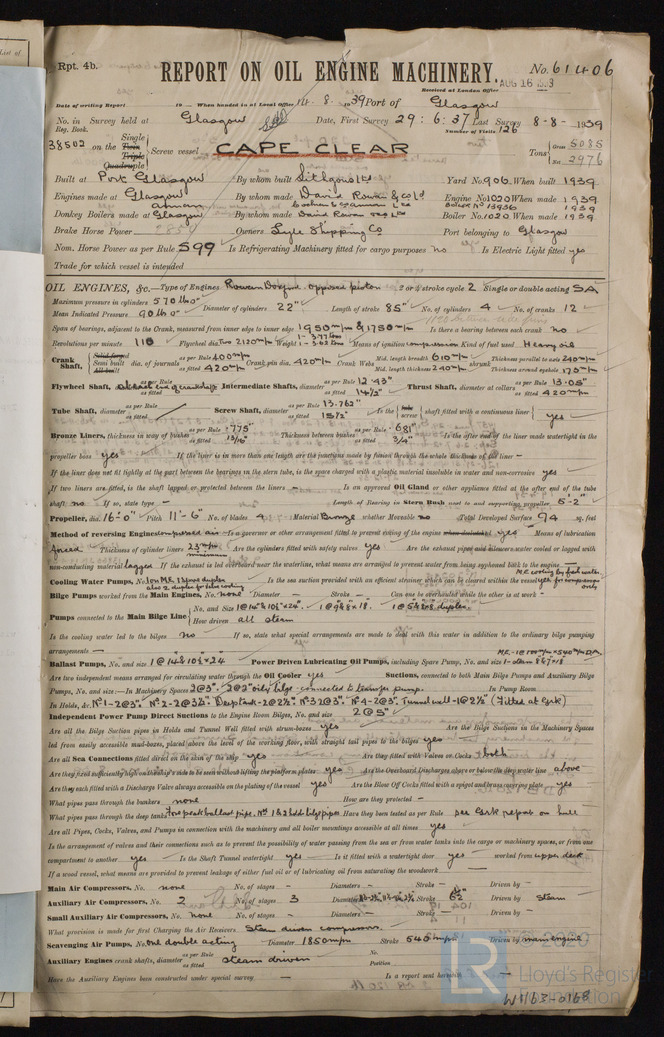 List of
Rpt. 4b.
REPORT ON OIL ENGINE MACHINERY. No. 61406
Received at London Office AUG 16 1939
Date of writing Report 19 When handed in at Local Office 14. 8. 1939 Port of Glasgow
No. in Reg. Book. Survey held at Glasgow Date, First Survey 29:6:37 Last Survey 8-8-1939
Number of Visits 126
38502 on the Single Twin Triple Quadruple Screw vessel CAPE CLEAR Tons Gross 5085 Net 2976
Built at Port Glasgow By whom built Lithgows Ltd Yard No. 906 When built 1939
Engines made at Glasgow By whom made David Rowan & Co Ld Engine No. 1020 When made 1939
Donkey Boilers made at Glasgow By whom made David Rowan & Co Ld Boiler No. 1020 When made 1939
Brake Horse Power Owners Lyle Shipping Co Port belonging to Glasgow
Nom. Horse Power as per Rule 599 Is Refrigerating Machinery fitted for cargo purposes no Is Electric Light fitted yes
Trade for which vessel is intended
OIL ENGINES, &c.—Type of Engines Rowan Doxford opposed piston 2 or 4 stroke cycle 2 Single or double acting SA
Maximum pressure in cylinders 570 lbs □" Diameter of cylinders 22" Length of stroke 85" No. of cylinders 4 No. of cranks 12
Mean Indicated Pressure 90 lbs □"
Span of bearings, adjacent to the Crank, measured from inner edge to inner edge 1950 m/m & 1750 m/m Is there a bearing between each crank no
Revolutions per minute 110 Flywheel dia. Two 2120 m/m Weight Means of ignition compression Kind of fuel used Heavy oil
Crank Shaft, Solid forged Semi built All built dia. of journals as per Rule 400 m/m as fitted 420 m/m Crank pin dia. 420 m/m Crank Webs Mid. length breadth 610 m/m Mid. length thickness 240 m/m shrunk Thickness parallel to axis 240 m/m Thickness around eyehole 175 m/m
Flywheel Shaft, diameter as per Rule as fitted Intermediate Shafts, diameter as per Rule 12.43" as fitted 14½" Thrust Shaft, diameter at collars as per Rule 13.05" as fitted 420 m/m
Tube Shaft, diameter as per Rule as fitted Screw Shaft, diameter as per Rule 13.762" as fitted 15½" Is the tube screw shaft fitted with a continuous liner yes
Bronze Liners, thickness in way of bushes as per Rule .775" as fitted 13/16" Thickness between bushes as per Rule .681" as fitted 3/4" Is the after end of the liner made watertight in the
propeller boss yes If the liner is in more than one length are the junctions made by fusion through the whole thickness of the liner —
If the liner does not fit tightly at the part between the bearings in the stern tube, is the space charged with a plastic material insoluble in water and non-corrosive yes
If two liners are fitted, is the shaft lapped or protected between the liners — Is an approved Oil Gland or other appliance fitted at the after end of the tube
shaft no If so, state type — Length of Bearing in Stern Bush next to and supporting propeller 5'-2"
Propeller, dia. 16'-0" Pitch 11'-6" No. of blades 4 Material Bronze whether Moveable no Total Developed Surface 94 sq. feet
Method of reversing Engines compressed air Is a governor or other arrangement fitted to prevent racing of the engine when declutched yes Means of lubrication
forced Thickness of cylinder liners Are the cylinders fitted with safety valves yes Are the exhaust pipes and silencers water cooled or lagged with
non-conducting material lagged If the exhaust is led overboard near the waterline, what means are arranged to prevent water from being syphoned back to the engine —
Cooling Water Pumps, No. Is the sea suction provided with an efficient strainer which can be cleared within the vessel
Bilge Pumps worked from the Main Engines, No. none Diameter — Stroke — Can one be overhauled while the other is at work —
Pumps connected to the Main Bilge Line No. and Size How driven all steam
Is the cooling water led to the bilges no If so, state what special arrangements are made to deal with this water in addition to the ordinary bilge pumping
arrangements —
Ballast Pumps, No. and size 1 @ 14 & 10½ x 24 Power Driven Lubricating Oil Pumps, including Spare Pump, No. and size
Are two independent means arranged for circulating water through the Oil Cooler yes Suctions, connected to both Main Bilge Pumps and Auxiliary Bilge
Pumps, No. and size:—In Machinery Spaces 2@3". 2@2" oily bilge connected to transfer pump. In Pump Room
In Holds, &c. No 1-2@3". No 2-2@3½" Deep tank-2@2½" No 3 2@3". No 4-2@3". Tunnel well-1@2½" (Fitted at Gsk)
Independent Power Pump Direct Suctions to the Engine Room Bilges, No. and size 2@5"
Are all the Bilge Suction pipes in Holds and Tunnel Well fitted with strum-boxes yes Are the Bilge Suctions in the Machinery Spaces
led from easily accessible mud-boxes, placed above the level of the working floor, with straight tail pipes to the bilges yes
Are all Sea Connections fitted direct on the skin of the ship yes Are they fitted with Valves or Cocks both
Are they fixed sufficiently high on the ship's side to be seen without lifting the platform plates yes Are the Overboard Discharges above or below the deep water line above
Are they each fitted with a Discharge Valve always accessible on the plating of the vessel yes Are the Blow Off Cocks fitted with a spigot and brass covering plate yes
What pipes pass through the bunkers none How are they protected —
What pipes pass through the deep tanks Fore peak ballast pipe. No 1 & 2 hold bilge pipes. Have they been tested as per Rule see Gsk report on hull
Are all Pipes, Cocks, Valves, and Pumps in connection with the machinery and all boiler mountings accessible at all times yes
Is the arrangement of valves and their connections such as to prevent the possibility of water passing from the sea or from water tanks into the cargo or machinery spaces, or from one
compartment to another yes Is the Shaft Tunnel watertight yes Is it fitted with a watertight door yes worked from upper deck
If a wood vessel, what means are provided to prevent leakage of either fuel oil or of lubricating oil from saturating the woodwork —
Main Air Compressors, No. none No. of stages — Diameters — Stroke — Driven by —
Auxiliary Air Compressors, No. 2 No. of stages 3 Diameters Stroke Driven by steam
Small Auxiliary Air Compressors, No. none No. of stages — Diameters — Stroke — Driven by —
What provision is made for first Charging the Air Receivers Steam driven compressors.
Scavenging Air Pumps, No. one double acting Diameter 1850 m/m Stroke 540 m/m Driven by main engine
Auxiliary Engines crank shafts, diameter as per Rule as fitted steam driven No. Position
Have the Auxiliary Engines been constructed under special survey — Is a report sent herewith
© 2020
LR
Lloyd's Register
Foundation
W1163-0168